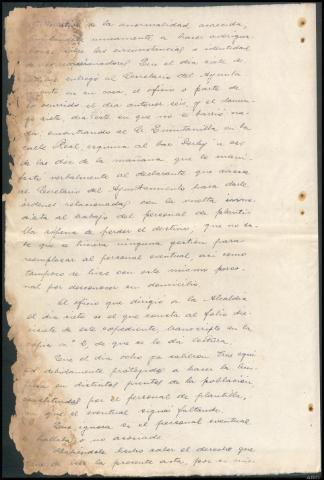 de la anormalidad acaecida,
unicamente a hacer averigua-
sobre las circunstancias o identidad
Que el dia siete de
entregó al Secretario del Ayunta
en su casa, el oficio o parte de
lo ocurrido el dia anterior seis, y el domin-
go siete, dia este en que no se barrió na-
da, encontrando al Sr. Quintanilla en la
calle Real, esquina al bar Derby a eso
de las doce de la mañana que le mani-
festó verbalmente al declarante que avisase
al Secretario del Ayuntamiento para darle
órdenes relacionadas con la vuelta inme-
diata al trabajo del personal de planti-
lla so pena de perder el destino, que no sa-
be que se hiciera ninguna gestion para
reemplazar al personal eventual, asi como
tampoco se hizo con este mismo perso-
nal por desconocer su domicilio.
El oficio que dirigió a la Alcaldia
el dia siete es el que consta al folio diez
siete de este expediente, transcripto en la
copia nº 2, de que se le da lectura.
Que el dia ocho ya salieron tres equi
pos debidamente protegidos a hacer la lim-
pieza en distintos puntos de la poblacion,
constituidos por el personal de plantilla,
ya que el eventual siguió faltando.
Que ignora si el personal eventual
hallaba o no asociado.
Haciendole hecho saber el derecho que
de leer la presente acta, por si mis-